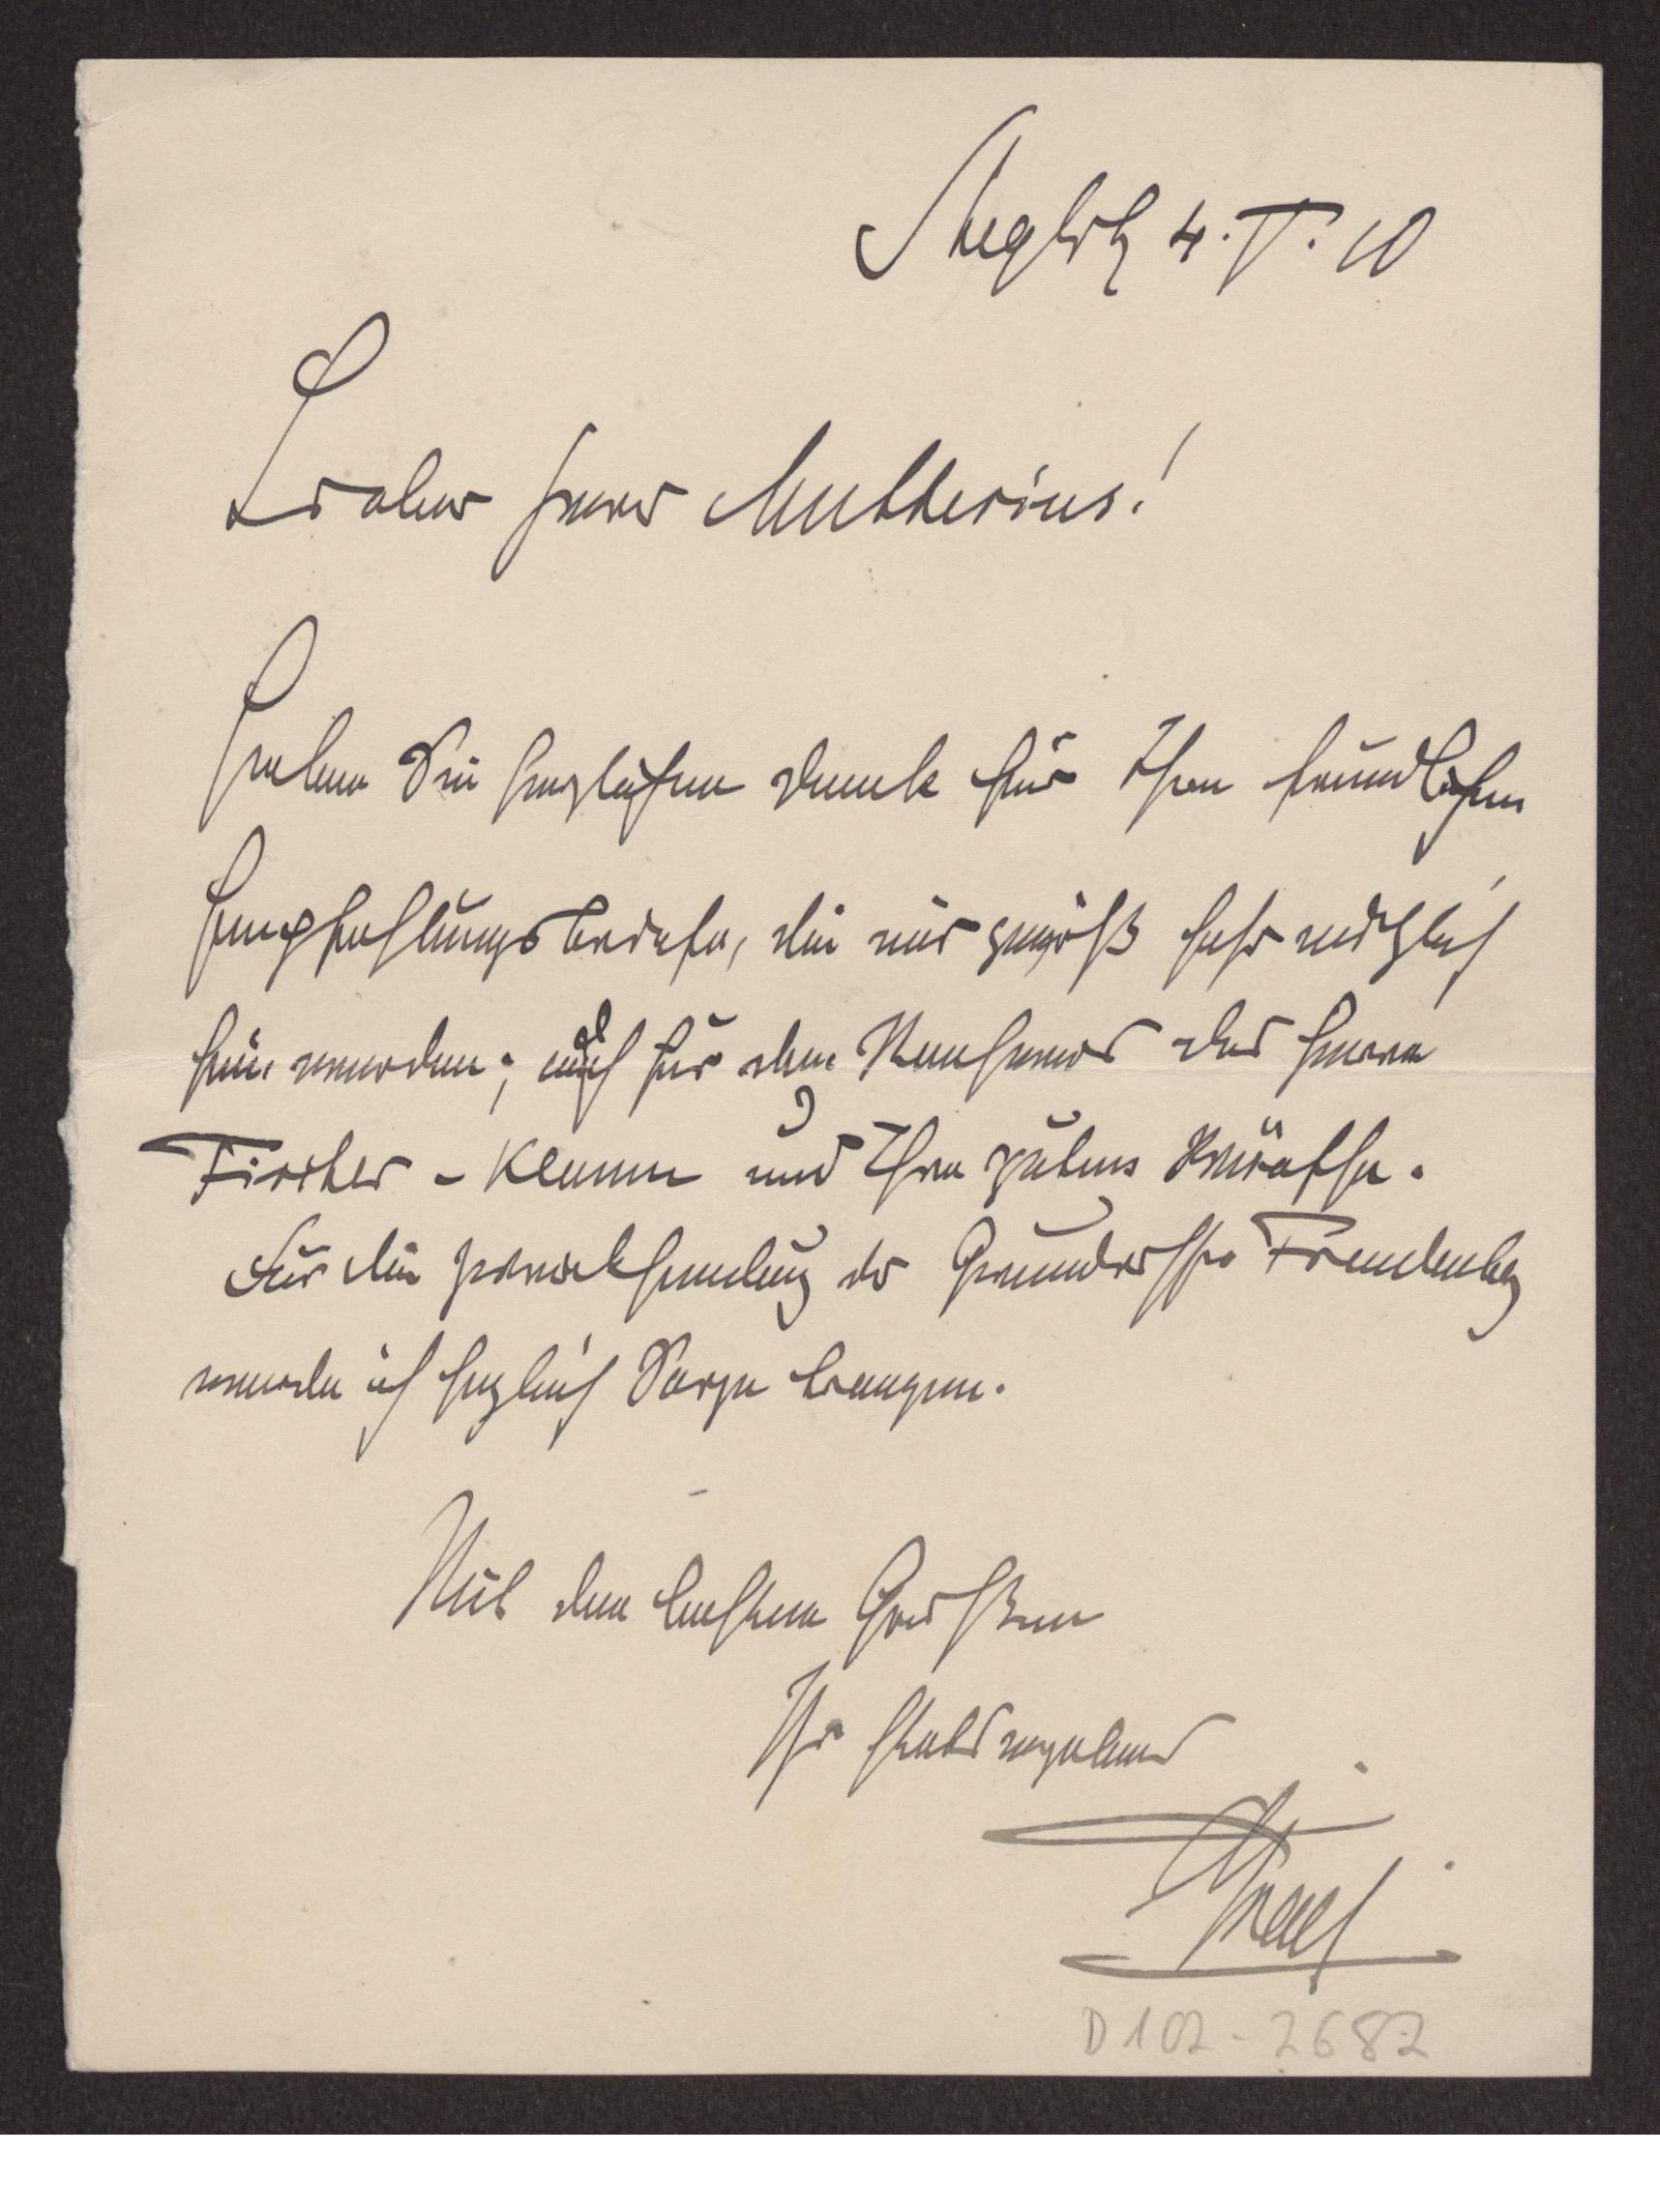 Steglitz 4. V. 10
Lieber Herr Muthesius!
Haben Sie herzlichen Dank für Ihre freundlichen
Empfehlungsbriefe, die mir gewiß sehr nützlich
sein werden; auch für den Nachweis des Herrn
Fischer - Klamm und Ihre guten
Für die Zurücksendung der Grundrisse Freudenberg
werde ich sogleich Sorge tragen.
Mit den besten Grüßen
Ihr stets ergebener
D 102 - 2682